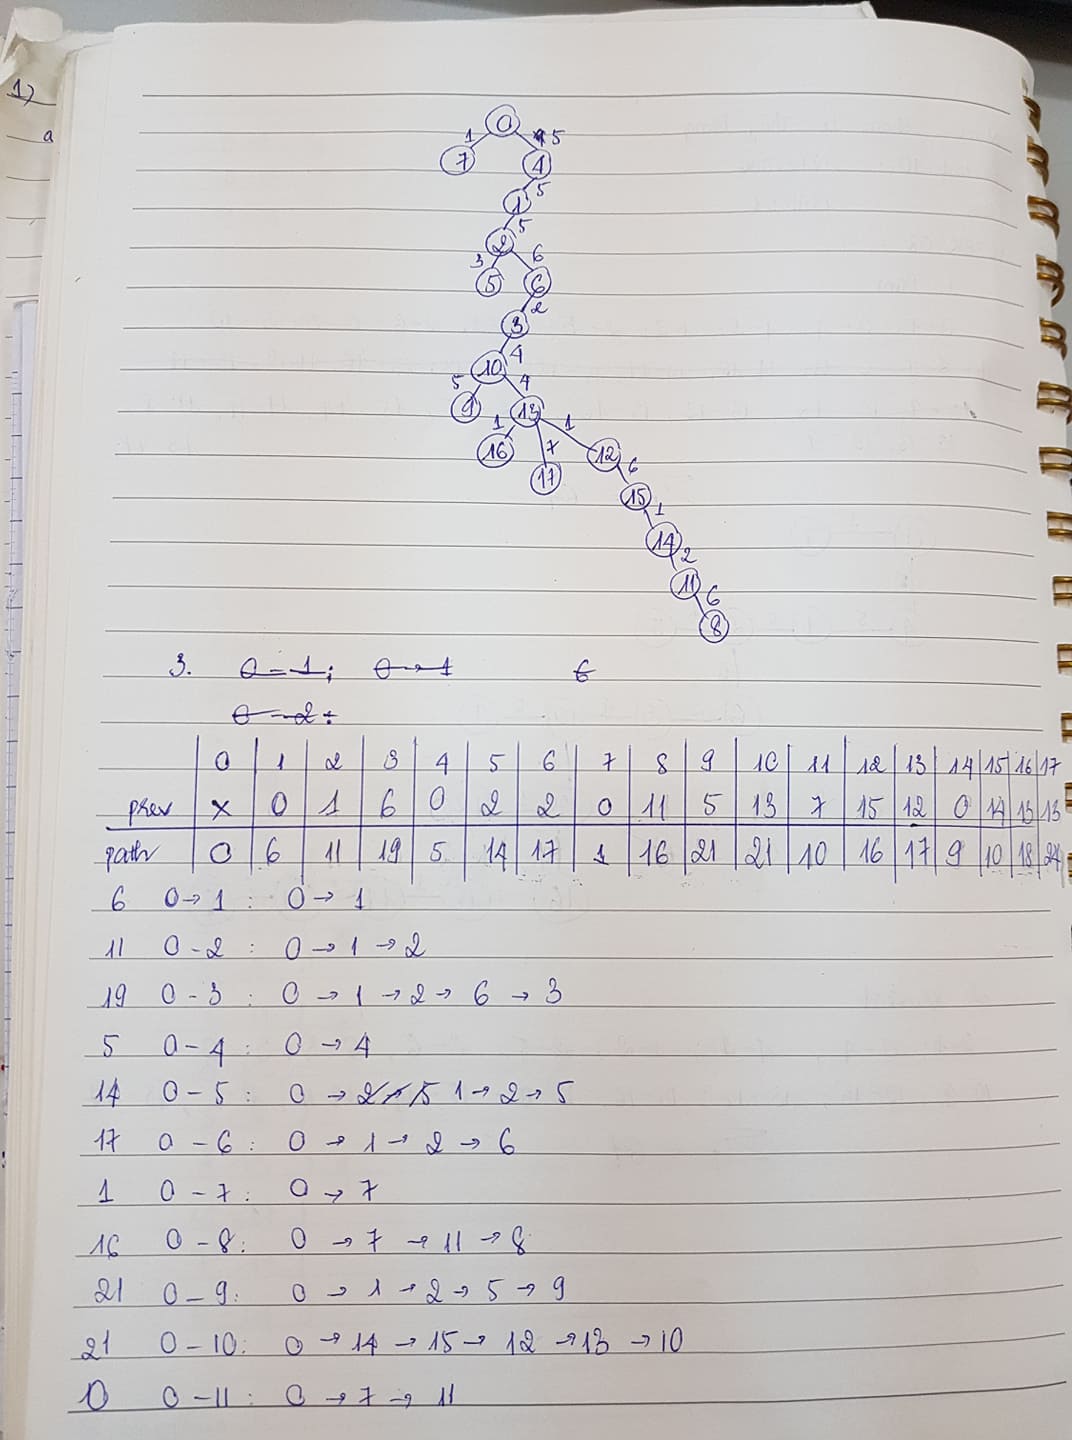 1)
a
0
1 5
7 4
5
1
5
2
3 6
5 6
2
3
4
10
5 4
9 13
1 7 1
16 17 12
6
15
1
14
2
11
6
8
3. 0-1; 0→1 6
0-2:
0 1 2 3 4 5 6 7 8 9 10 11 12 13 14 15 16 17
prev x 0 1 6 0 2 2 0 11 5 13 7 15 12 0 14 13 13
path 0 6 11 19 5 14 17 1 16 21 21 10 16 17 9 10 18 24
6 0→1: 0→1
11 0-2: 0→1→2
19 0-3: 0→1→2→6→3
5 0-4: 0→4
14 0-5: 0→2→5 1→2→5
17 0-6: 0→1→2→6
1 0-7: 0→7
16 0-8: 0→7→11→8
21 0-9: 0→1→2→5→9
21 0-10: 0→14→15→12→13→10
10 0-11: 0→7→11